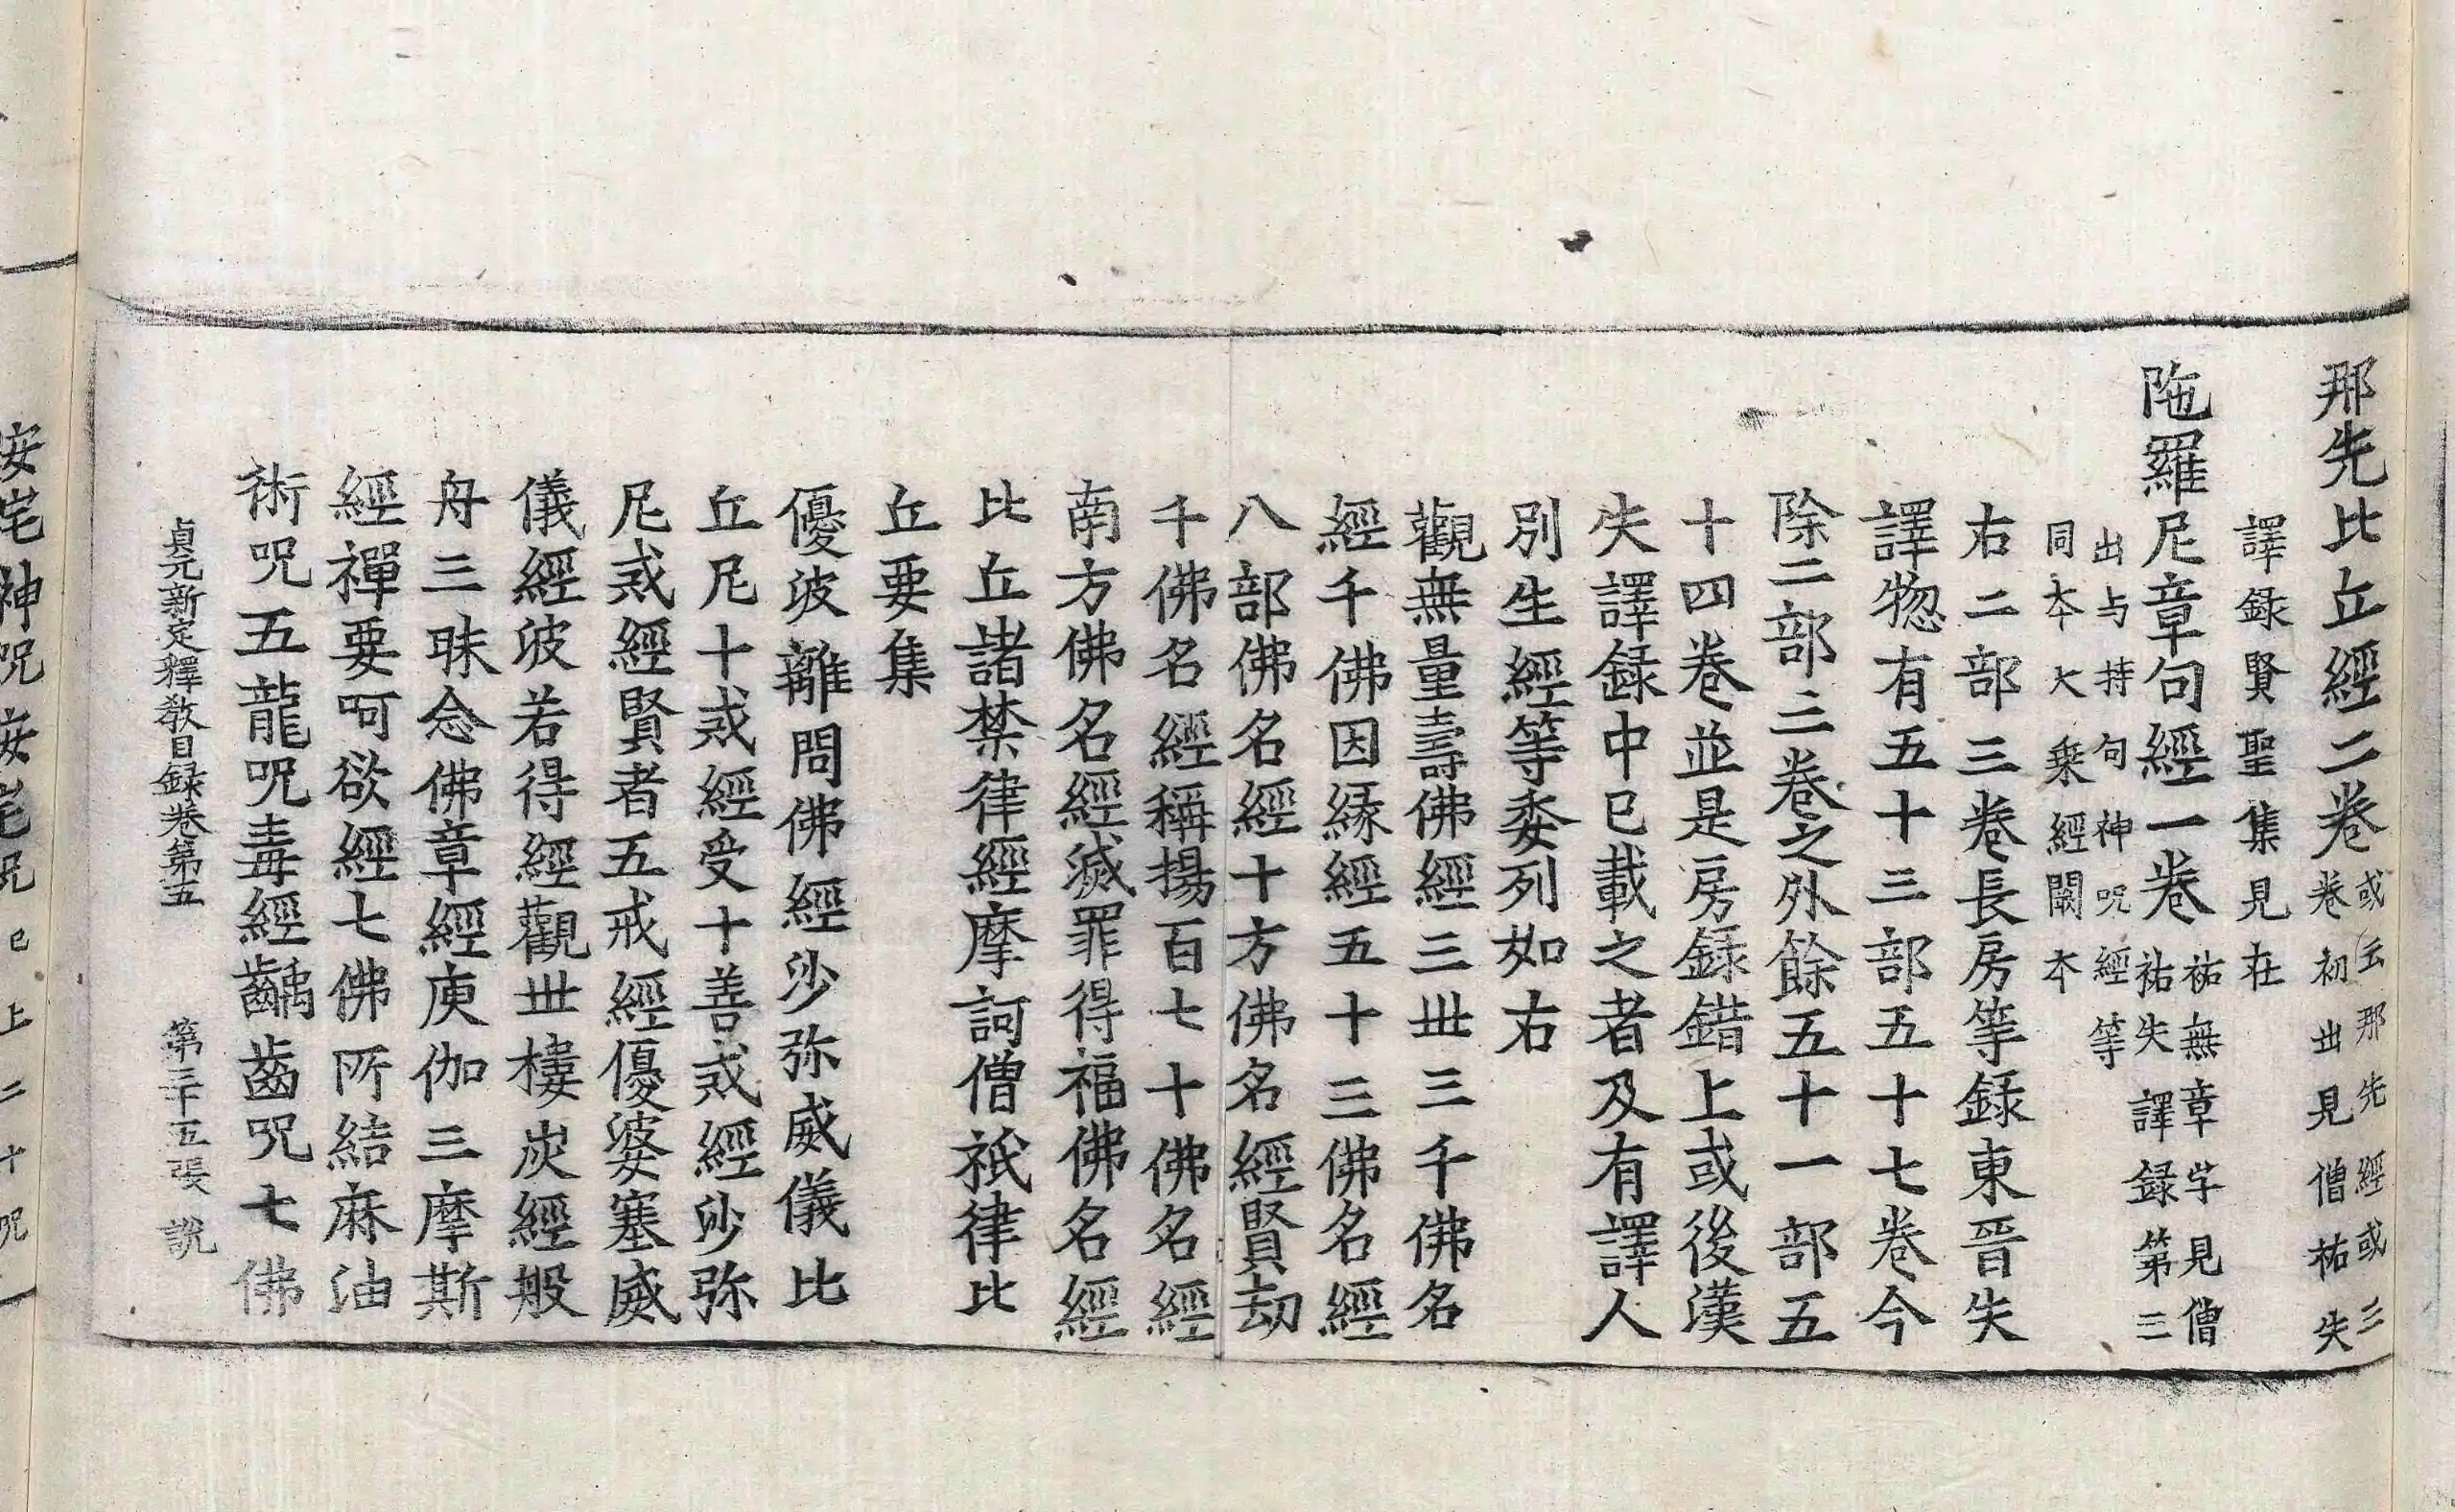 那先比丘經二卷或云那先經或三卷初出見僧祐失
譯錄賢聖集見在
陁羅尼章句經一卷祐無章字見僧祐失譯録第三
出与持句神呪經等
同本大乗經闕本
右二部三卷長房等録東晉失
譯惣有五十三部五十七卷今
除二部三卷之外餘五十一部五
十四卷並是房録錯上或後漢
失譯録中已載之者及有譯人
別生經等委列如右
觀無量壽佛經三丗三千佛名
經千佛因緣經五十三佛名經
八部佛名經十方佛名經賢劫
千佛名經稱揚百七十佛名經
南方佛名經滅罪得福佛名經
比丘諸禁律經摩訶僧祇律比
丘要集
優波離問佛經沙弥威儀比
丘尼十戒經受十善戒經沙弥
尼戒經賢者五戒經優婆塞威
儀經波若得經觀丗樓炭經般
舟三昧念佛章經庾伽三摩斯
經禪要呵欲經七佛所結麻油
術呪五龍呪毒經齲齒呪七佛
貞元新定釋教目録卷第五 第三十五張 説
安宅神呪安宅呪已上二十呪